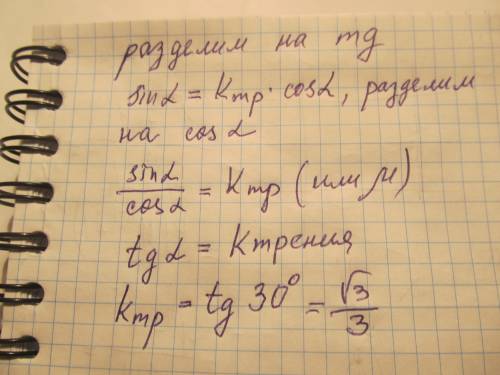 разделим на mg
sinα = Kтр · cosα, разделим
на cosα
sinα/cosα = Kтр (или μ)
tgα = Kтрения
kтр = tg 30° = √3/3